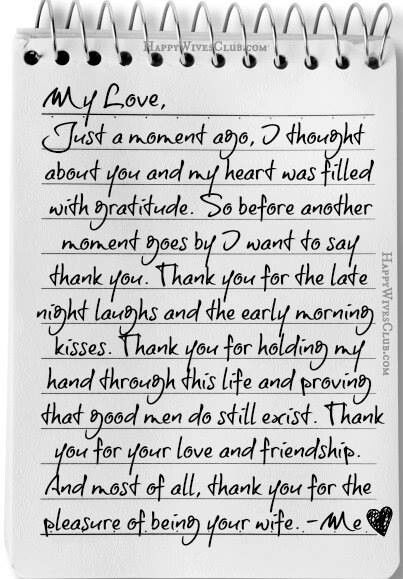 HAPPYWIVESCLUB.COM
My Love,
Just a moment ago, I thought
about you and my heart was filled
with gratitude. So before another
moment goes by I want to say
thank you. Thank you for the late
night laughs and the early morning
kisses. Thank you for holding my
hand through this life and proving
that good men do still exist. Thank
you for your love and friendship.
And most of all, thank you for the
pleasure of being your wife. -Me
HAPPYWIVESCLUB.COM